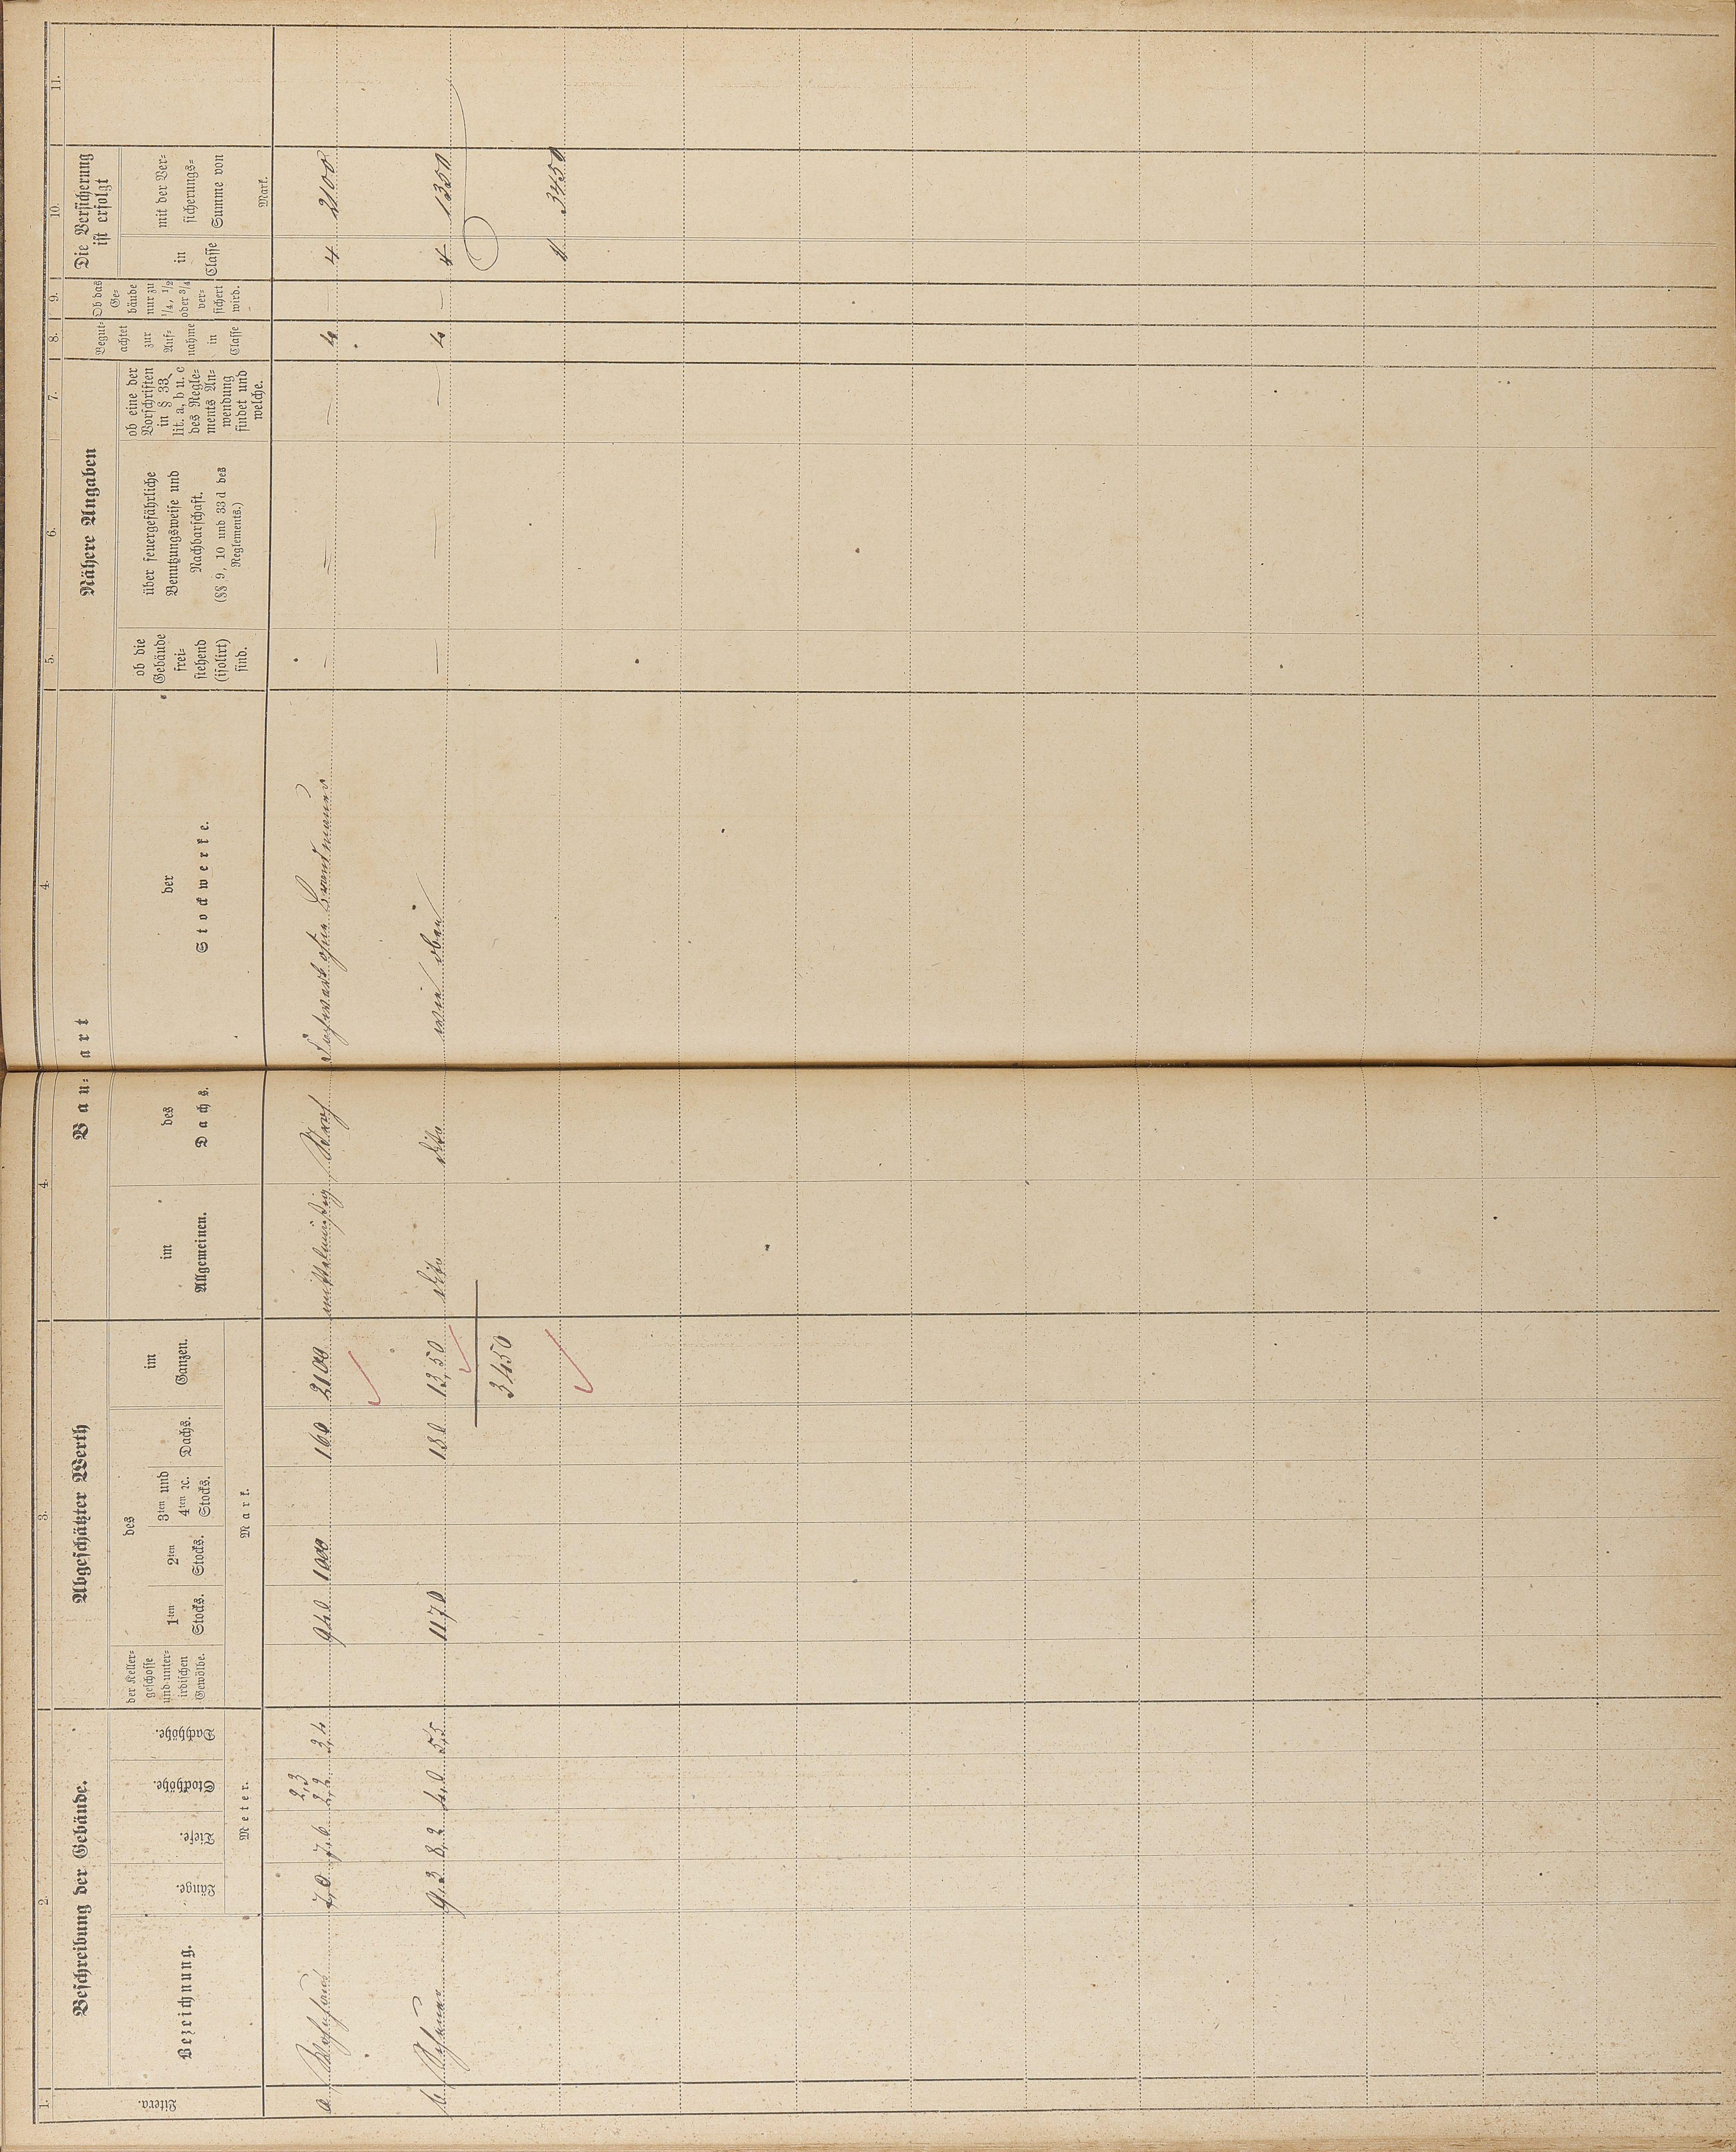 1. 2. 3. 4. 4. 5. 6. 7. 8. 9. 10. 11.
Litera.
Beschreibung der Gebäude.
Bezeichnung.
Länge. Tiefe. Stockhöhe. Dachhöhe.
Meter.
Abgeschätzter Werth
der Keller-
geschosse
und unter-
irdischen
Gewölbe.
des
1ten
Stocks.
2ten
Stocks.
3ten und
4ten ꝛc.
Stocks.
Dachs.
im
Ganzen.
Mark.
Bau-art
im
Allgemeinen.
des
Dachs.
der
Stockwerke.
Nähere Angaben
ob die
Gebäude
frei-
stehend
(isolirt)
sind.
über feuergefährliche
Benutzungsweise und
Nachbarschaft.
(§§ 9, 10 und 33 d des
Reglements.)
ob eine der
Vorschriften
in § 33,
lit. a, b u. c
des Regle-
ments An-
wendung
findet und
welche.
Begut-
achtet
zur
Auf-
nahme
in
Classe
Ob das
Ge-
bäude
nur zu
1/4, 1/2
oder 3/4
ver-
sichert
wird.
Die Versicherung
ist erfolgt
in
Classe
mit der Ver-
sicherungs-
Summe von
Mark.
2,3
a. Wohnhaus 7,0 7,6 2,2 3,4 940 1000 160 2100 mittelmäßig Stroh Fachwerk ohne Brandmauer – – – 4 – 4 2100
b. Scheune 9,3 8,2 4,0 5,5 1170 180 1350 dito dito wie oben – – – 4 – 4 1350
3450
3450